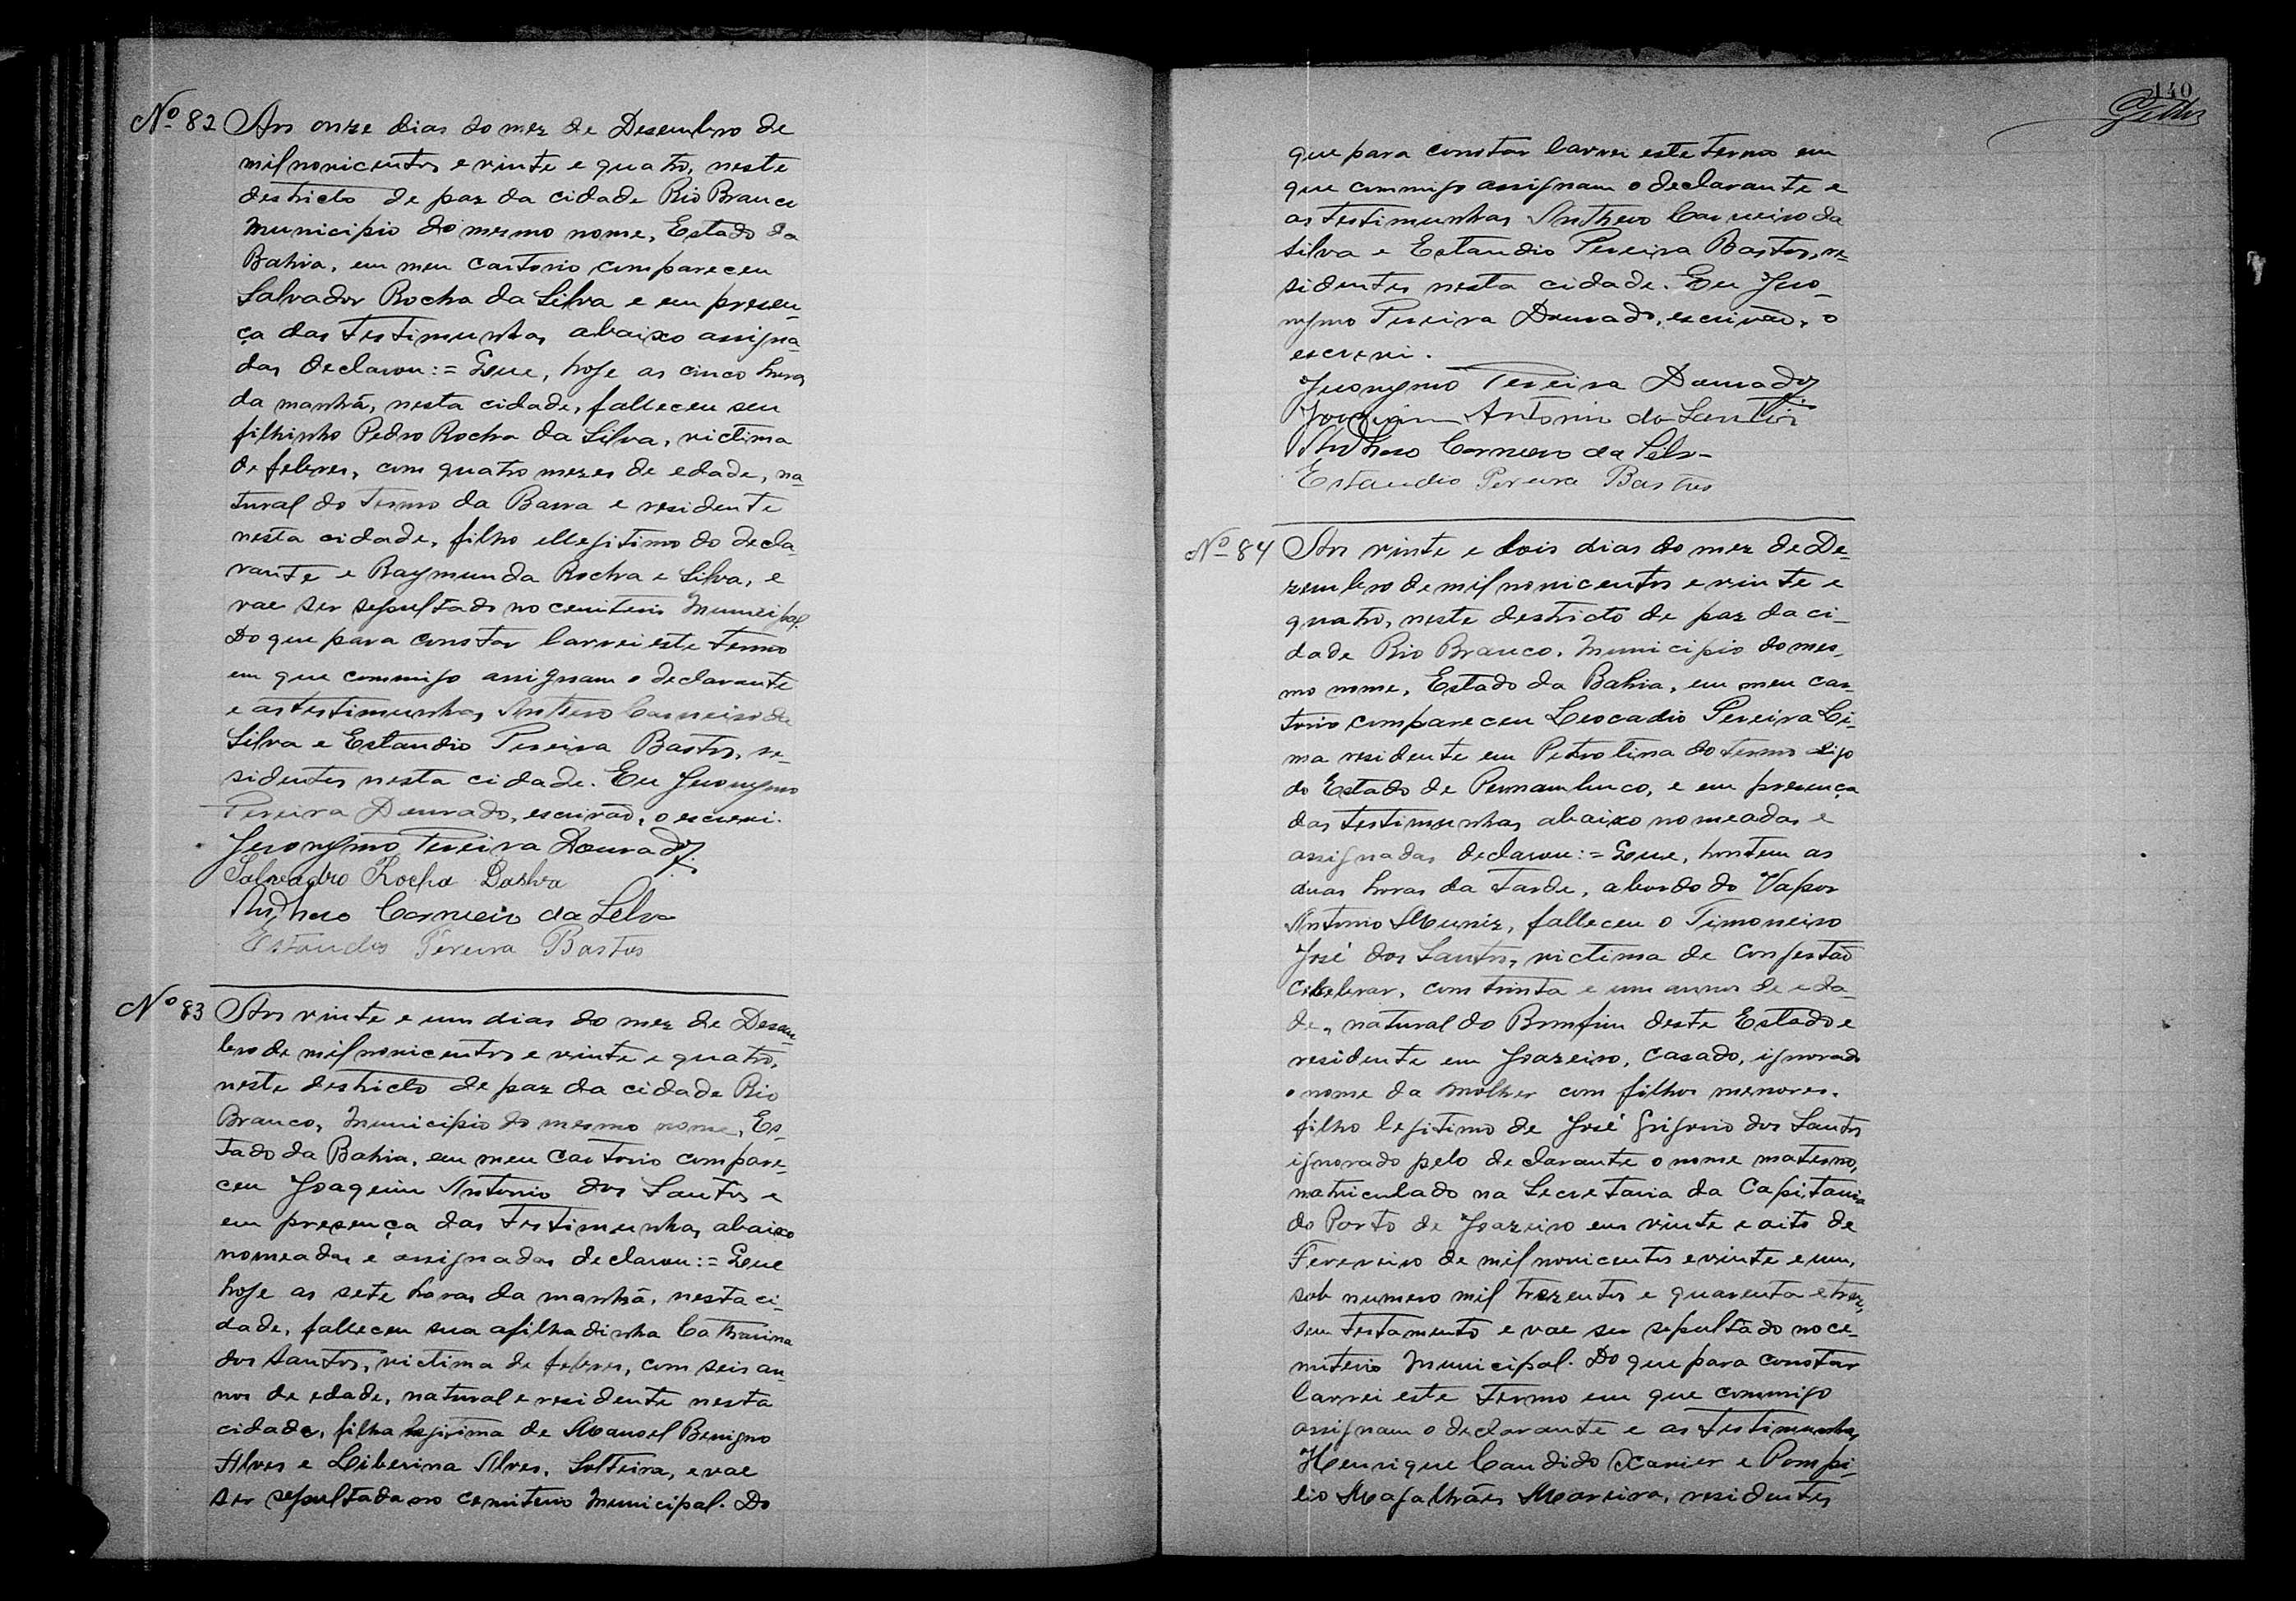 Nº 82 Aos onze dias do mez de Desembro de
mil novicentos e vinte e quatro, neste
destricto de paz da cidade Rio Branco
Municipio do mesmo nome, Estado da
Bahia, em meu Cartorio compareceu
Salvador Rocha da Silva e em presen-
ça das testimunhas abaixo assigna-
das declarou:= Que, hoje as cinco horas
da manhã, nesta cidade, falleceu seu
filhinho Pedro Rocha da Silva, victima
de febres, com quatro mezes de edade, na-
tural do Termo da Barra e residente
nesta cidade, filho ellegitimo do decla-
rante e Raymunda Rocha e Silva, e
vae ser sepultado no cemiterio Municipal.
Do que para constar lavrei este termo
em que commigo assignam o declarante
e as testimunhas Anthero Carneiro da
Silva e Estandio Pereira Bastos, re-
sidentes nesta cidade. Eu Jeronymo
Pereira Dourado, escrivão, o escrevi.
Jeronymo Pereira Dourado
Salvadro Rocha Dasilva
Anthero Carneiro da Silva
Estandio Pereira Bastos
Nº 83 Aos vinte e um dias do mez de Desem-
bro de mil novicentos e vinte e quatro,
neste destricto de paz da cidade Rio
Branco, Municipio do mesmo nome, Es-
tado da Bahia, em meu Cartorio compare-
ceu Joaquim Antonio dos Santos e
em presença das testimunhas abaixo
nomeadas e assignadas declarou:= Que
hoje as sete horas da manhã, nesta ci-
dade, falleceu sua afilhadinha Catharina
dos Santos, victima de febres, com seis an-
nos de edade, natural e residente nesta
cidade, filha legitima de Manoel Benigno
Alves e Liberina Alves, Solteira, e vae
ser sepultada no cemiterio Municipal. Do
140
que para constar lavrei este termo em
que commigo assignam o declarante e
as testimunhas Anthero Carneiro da
Silva e Estandio Pereira Bastos, re-
sidentes nesta cidade. Eu Jero-
nymo Pereira Dourado, escrivão, o
escrevi.
Jeronymo Pereira Dourado
Joaquim Antonio do Santos
Anthero Carneiro da Silva
Estandio Pereira Bastos
Nº 84 Aos vinte e dois dias do mez de De-
zembro de mil novicentos e vinte e
quatro, neste destricto de paz da ci-
dade Rio Branco, Municipio do mes-
mo nome, Estado da Bahia, em meu car-
torio compareceu Leocadio Pereira Li-
ma residente em Petrolina do termo digo
do Estado de Pernambuco, e em presença
das testimunhas abaixo nomeadas e
assignadas declarou:= Que, hontem as
duas horas da tarde, abordo do Vapor
Antonio Muniz, falleceu o Timoneiro
José dos Santos, victima de Congestão
Celebrar, com trinta e um annos de eda-
de, natural do Bomfim deste Estado e
residente em Joazeiro, casado, ignorado
o nome da mulher com filhos menores,
filho legitimo de José Grigorio dos Santos
ignorado pelo declarante o nome materno,
matriculado na Secretaria da Capitania
do Porto de Joazeiro em vinte e oito de
Fevereiro de mil novicentos e vinte e um,
sob numero mil trezentos e quarenta e trez,
sem testamento e vae ser sepultado no ce-
miterio Municipal. Do que para constar
lavrei este termo em que commigo
assignam o declarante e as testimunhas
Henrique Candido Xavier e Pompi-
lio Magalhães Moreira, residentes